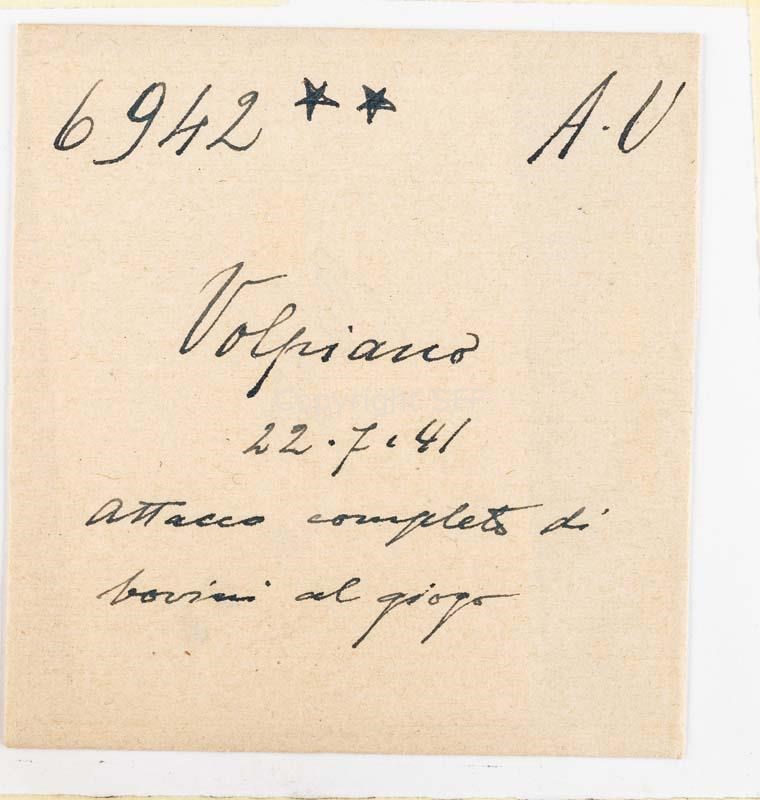 6942 ★★ A.V
Volpiano
22.7.41
Attacco completo di
bovini al giogo